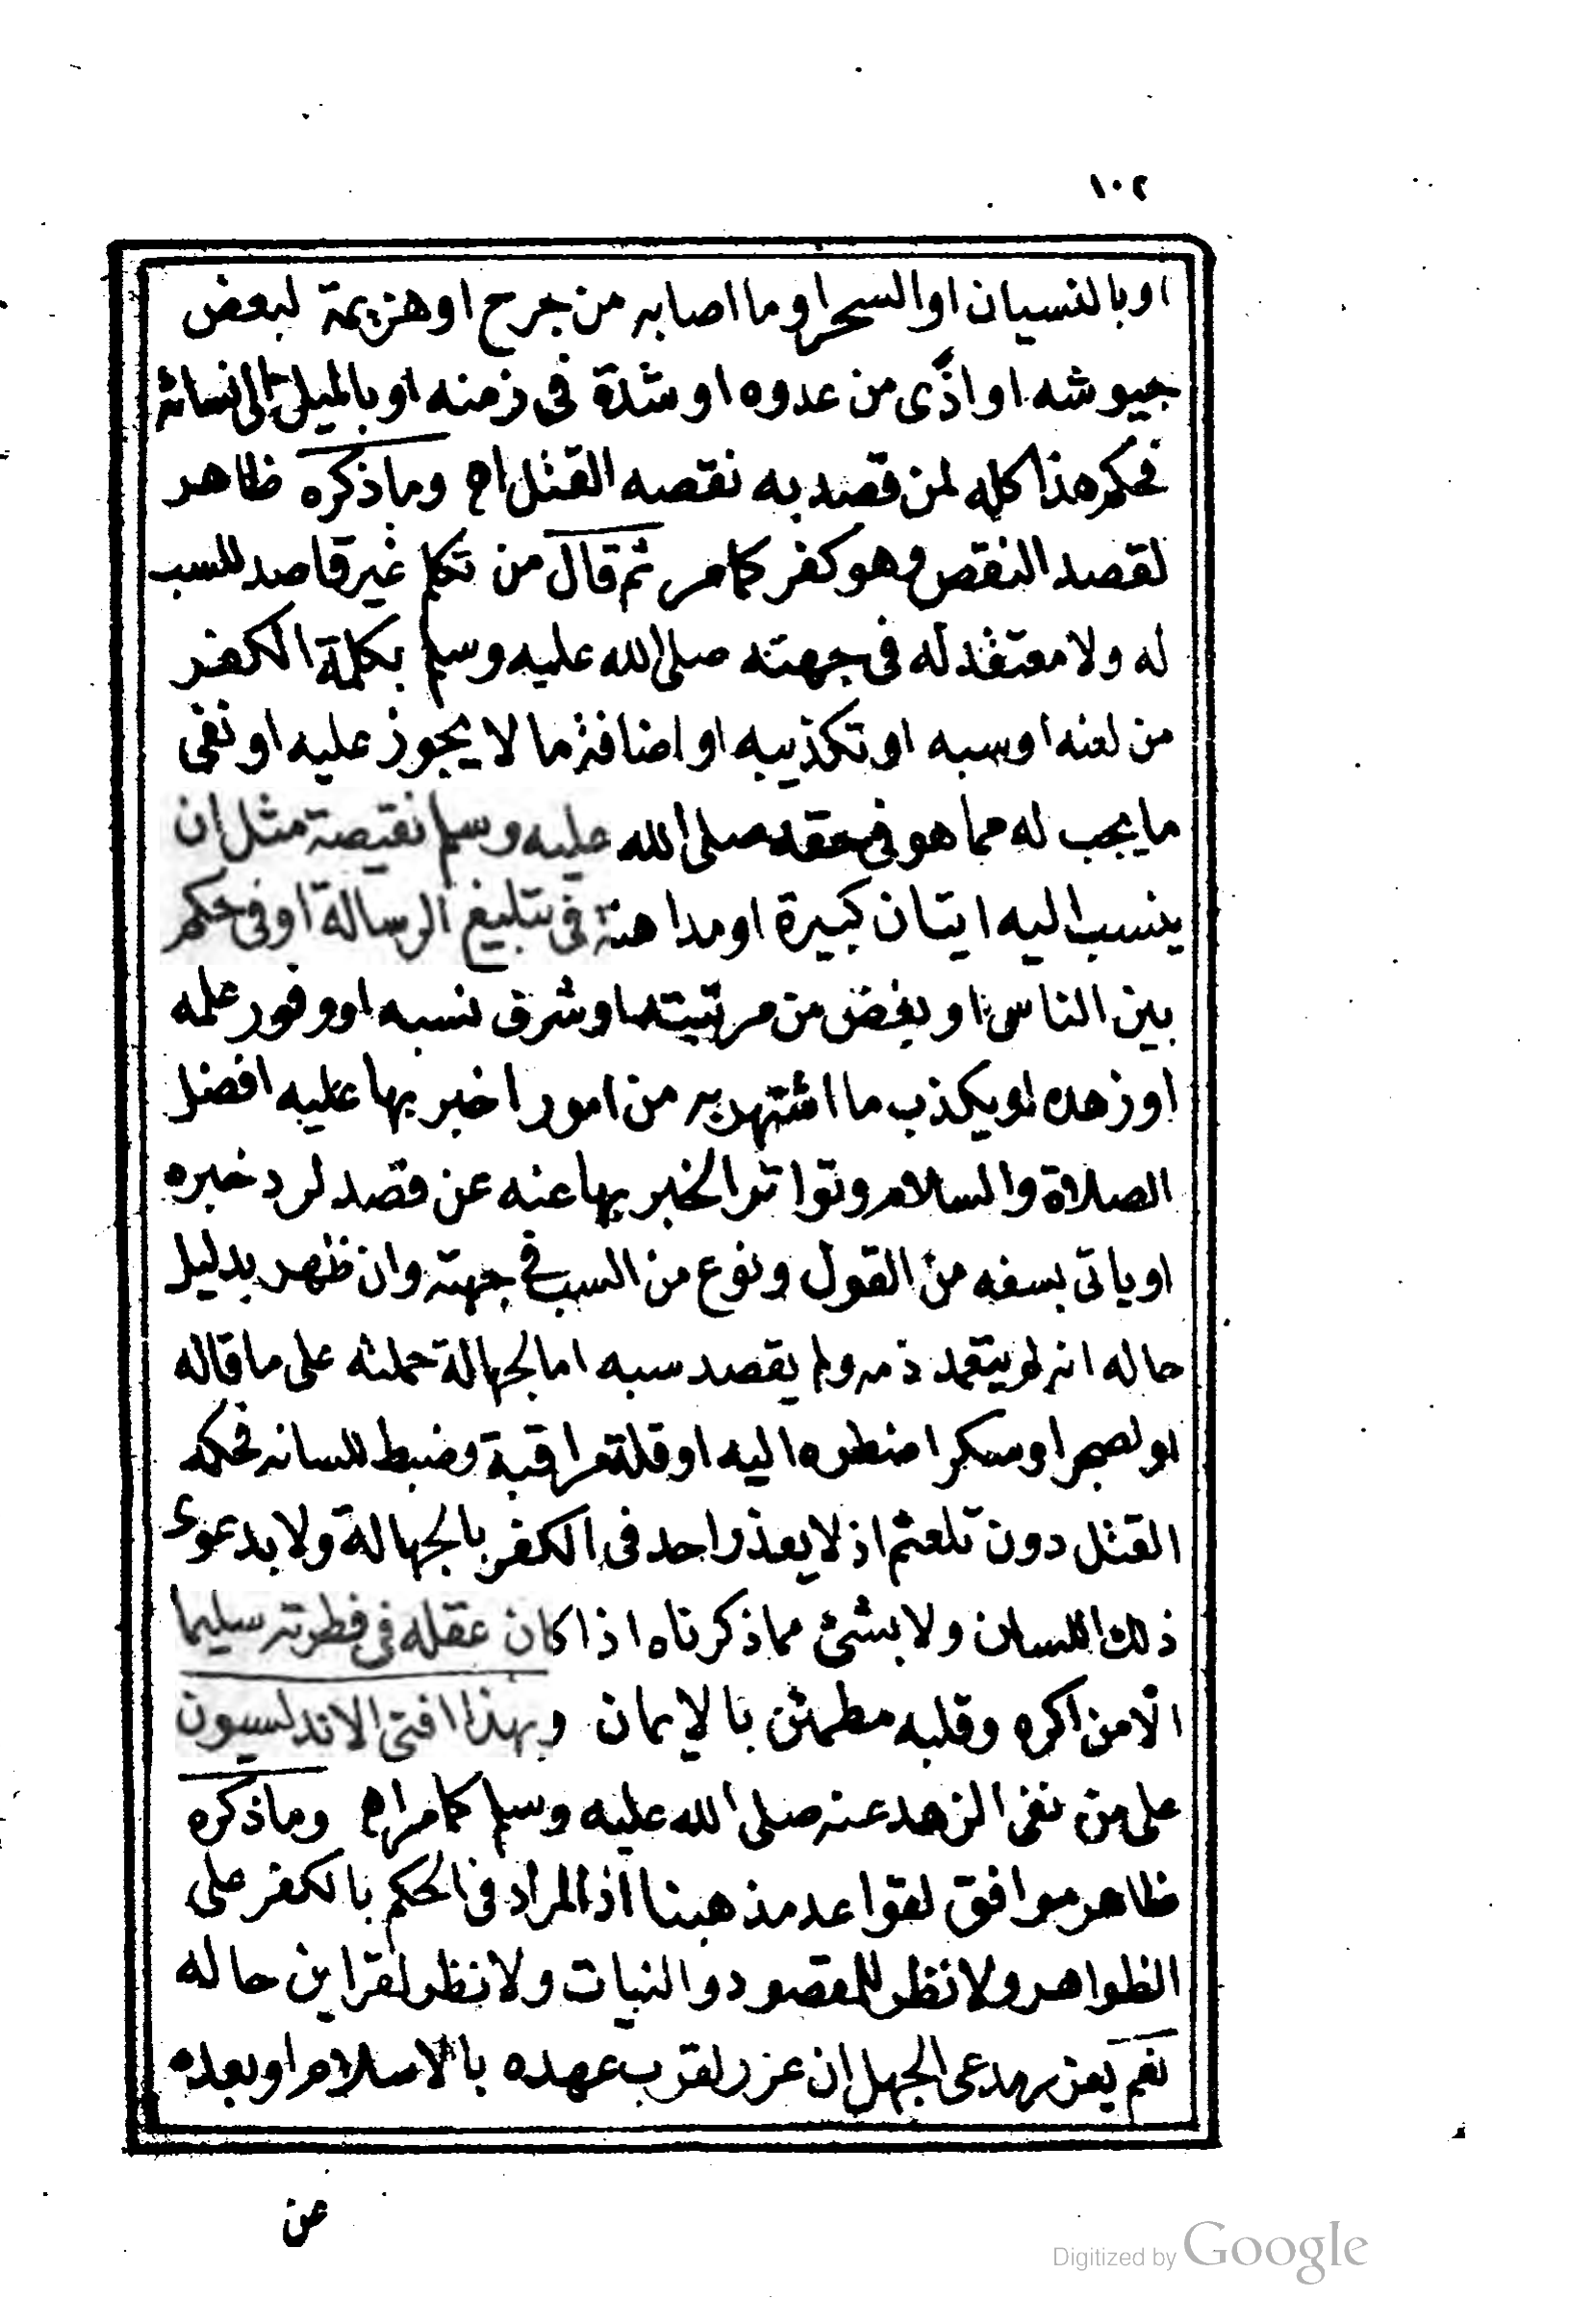 ١٠٢
او بالنسيان او السحر او ما اصابه من جرح او هزيمة لبعض
جيوشه او اذًى من عدوه او شدة فى زمنه او بالميل الى نسائه
فحكم هذا كله لمن قصد به نقصه القتل اه وما ذكره ظاهر
لقصد النقص وهو كفر كما مر ثم قال من تكلم غير قاصد للسب
له ولا معتقد له فى جهته صلى الله عليه وسلم بكلمة الكفر
من لعنه او سبه او تكذيبه او اضافة ما لا يجوز عليه او نفى
ما يجب له مما هو فى حقه صلى الله عليه وسلم نقيصة مثل ان
ينسب اليه اتيان كبيرة او مداهنة فى تبليغ الرسالة او فى حكم
بين الناس او يغض من مرتبته او شرف نسبه او وفور علمه
او زهده او يكذب ما اشتهر به من امور اخبر بها عليه افضل
الصلاة والسلام وتواتر الخبر بها عنه عن قصد لرد خبره
او ياتى بسفه من القول ونوع من السب فى جهته وان ظهر بدليل
حاله انه لم يتعمد ذمه ولم يقصد سبه اما لجهالة حملته على ما قاله
او لضجر او سكر اضطره اليه او قلة مراقبة وضبط للسانه فحكمه
القتل دون تلعثم اذ لا يعذر احد فى الكفر بالجهالة ولا بدعوى
ذلك اللسان ولا بشئ مما ذكرناه اذا كان عقله فى فطرته سليما
الا من اكره وقلبه مطمئن بالايمان وبهذا افتى الاندلسيون
على من نفى الزهد عنه صلى الله عليه وسلم كما مر اه وما ذكره
ظاهر موافق لقواعد مذهبنا اذ المراد فى الحكم بالكفر على
الظواهر ولا نظر للمقصود والنيات ولا نظر لقراين حاله
نعم يعذر مدعى الجهل ان عذر لقرب عهده بالاسلام او بعده
عن
Digitized by Google